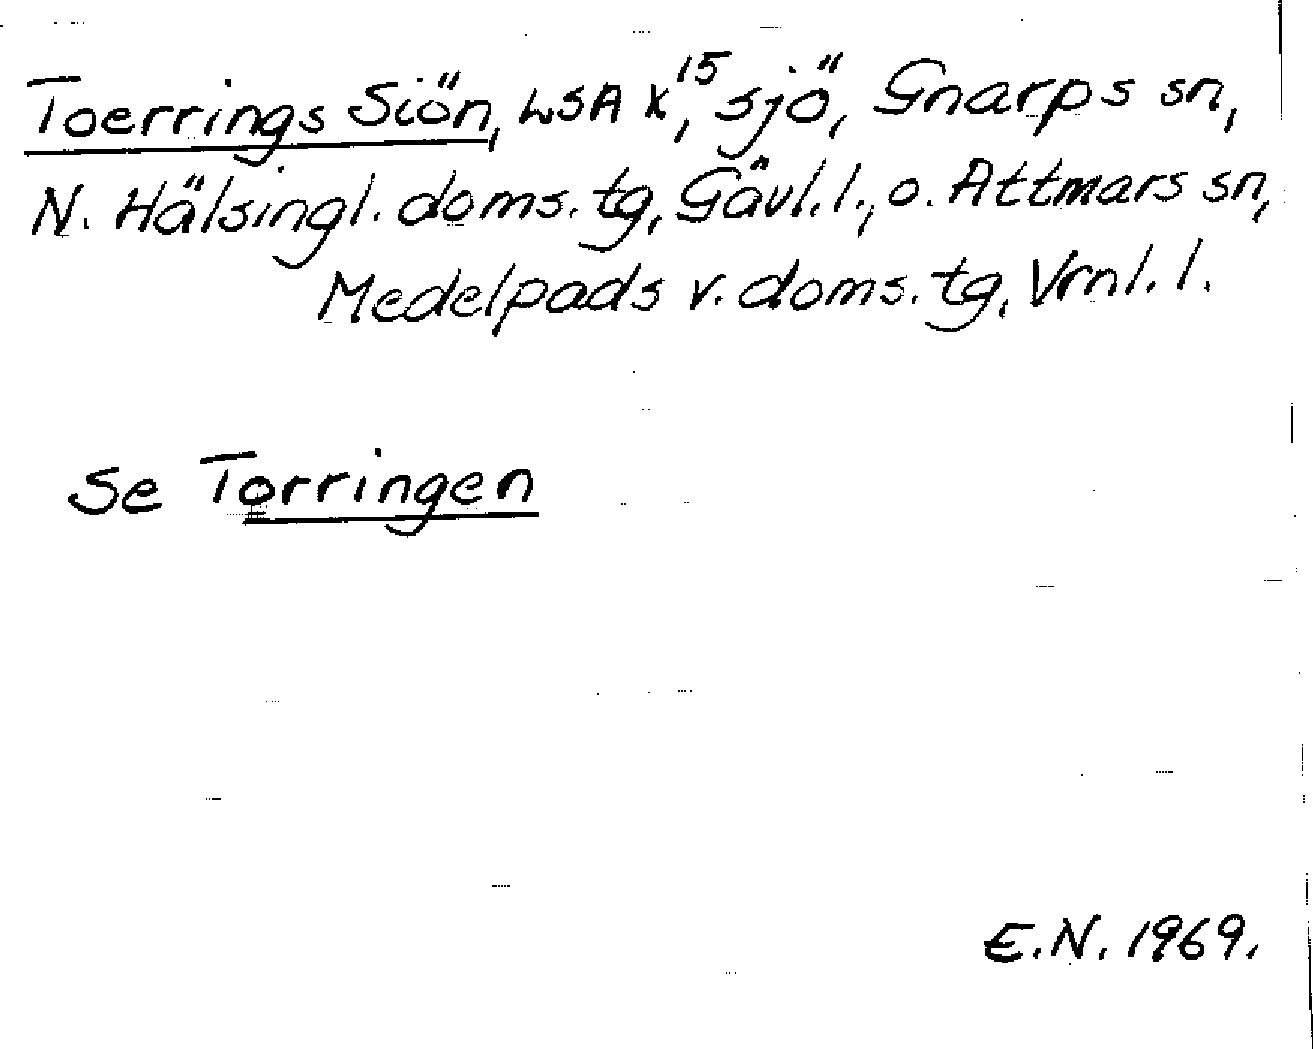 Toerrings Siön, LSA X¹⁵, sjö, Gnarps sn,
N. Hälsingl. doms. tg, Gävl. l., o. Attmars sn,
Medelpads v. doms. tg, Vrnl. l.
Se Torringen
E.N. 1969.